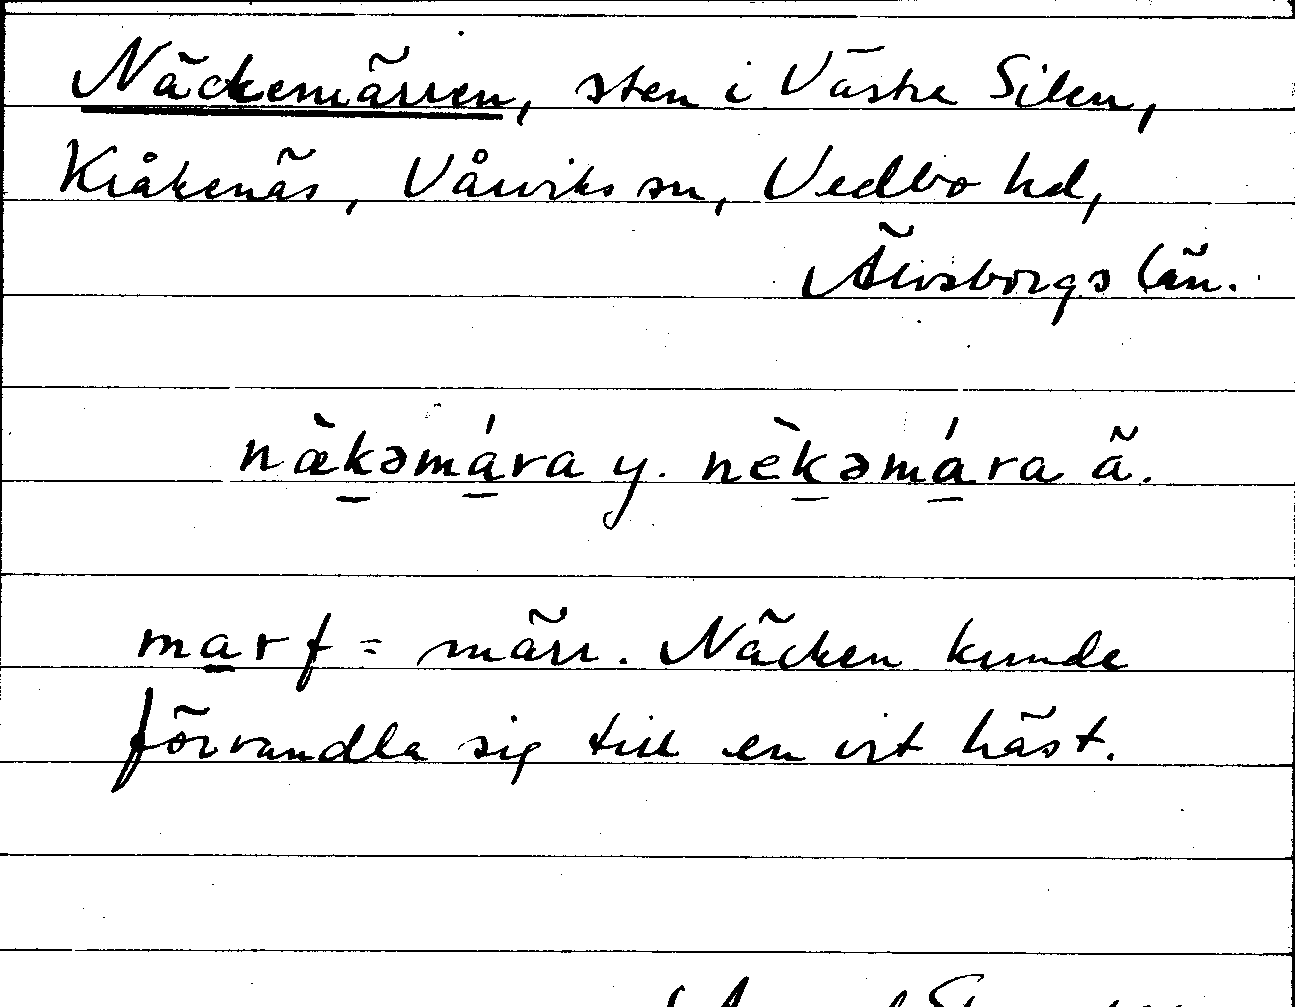 Näckemärren, sten i Västra Silen,
Kråkenäs, Vårviks sn, Vedbo hd,
Älvsborgs län.
næ̀ḵəmá̱ra y. nèḵəmá̱ra ä.
ma̱r f = märr. Näcken kunde
förvandla sig till en vit häst.